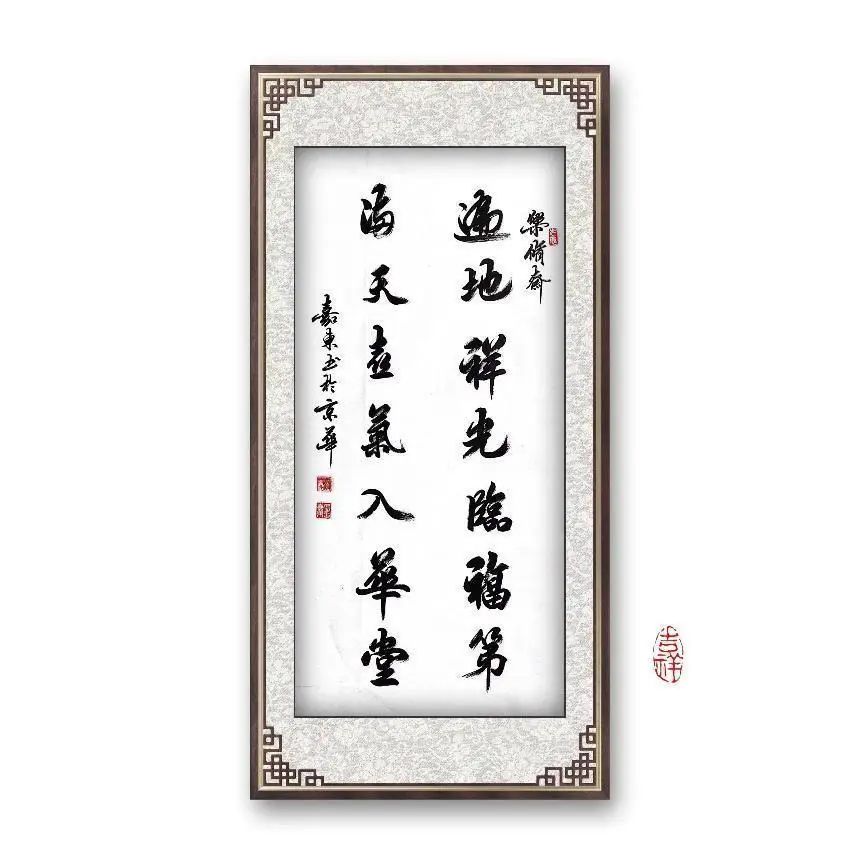 樂脩齋
遍地祥光臨福第
滿天喜氣入華堂
嘉東书於京華
吉祥